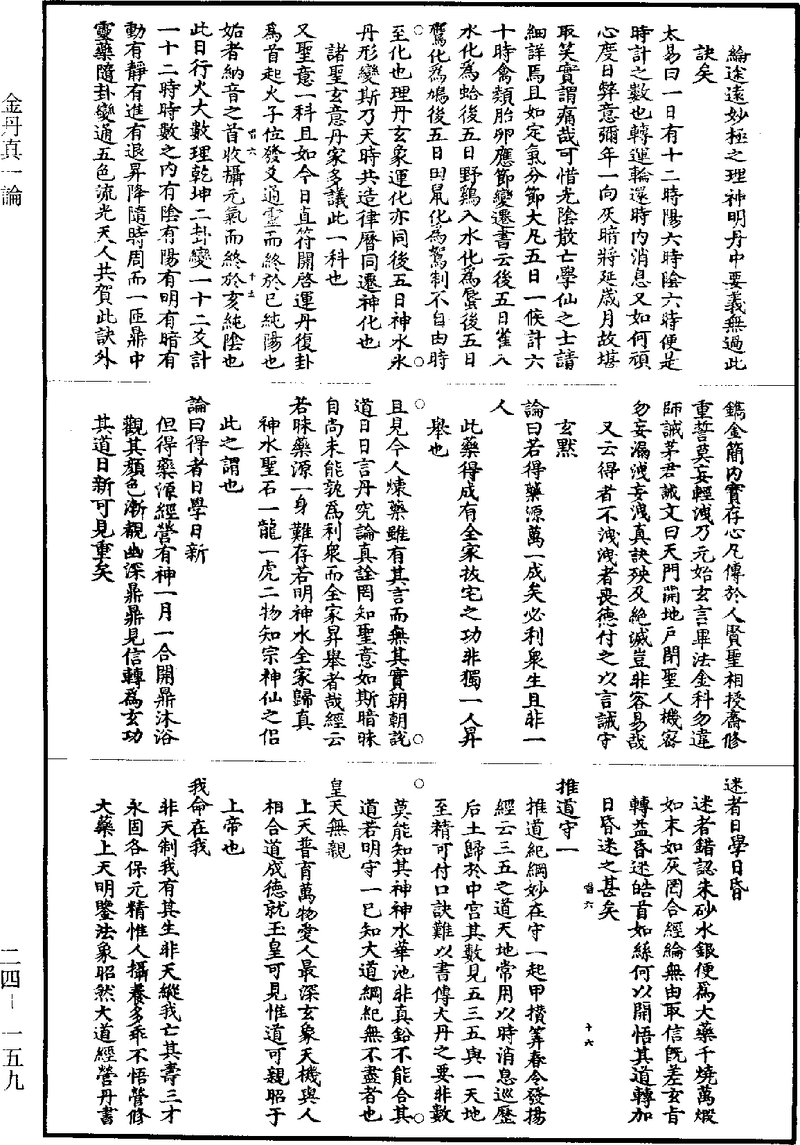 綸途遠妙極之理神明丹中要義無過此
訣矣
太易曰一日有十二時陽六時陰六時便是
時計之數也轉運輪還時內消息又如何頑
心度日弊意彌年一向灰暗將延歲月故堪
取笑實謂痛哉可惜光陰散亡學仙之士請
細詳焉且如定氣分節大凡五日一候計六
十時禽類胎卵應節變遷書云後五日雀入
水化為蛤後五日野鷄入水化為蜃後五日
鷹化為鳩後五日田鼠化為鴽制不自由時
至化也理丹玄象運化亦同後五日神水氷
丹形變斯乃天時共造律曆同遷神化也
諸聖玄意丹家多議此一科也
又聖意一科且如今日直符開啓運丹復卦
為首起火子位發爻通靈而終於巳純陽也
姤者納音之首收攝元氣而終於亥純陰也
此日行火大數理乾坤二卦變一十二爻計
一十二時時數之內有陰有陽有明有暗有
動有靜有進有退昇降隨時周而一匝鼎中
靈藥隨卦變通五色流光天人共賀此訣外
鐫金簡內實存心凡傳於人賢聖相授齋修
重誓莫妄輕洩乃元始玄言畢法金科勿違
師誠茅君誡文曰天門開地戶閉聖人機密
勿妄漏洩妄洩真訣殃及絕滅豈非容易哉
又云得者不洩洩者喪德付之以言誠守
玄默
論曰若得藥源萬一成矣必利衆生且非一
人
此藥得成有全家拔宅之功非獨一人昇
舉也
且見今人煉藥雖有其言而無其實朝朝說
道日日言丹究論真詮罔知聖意如斯暗昧
自尚未能孰為利衆而全家昇舉者哉經云
若昧藥源一身難存若明神水全家歸真
神水聖石一龍一虎二物知宗神仙之侶
此之謂也
論曰得者日學日新
但得藥源經營有神一月一合開鼎沐浴
觀其顏色漸覩幽深鼎鼎見信轉為玄功
其道日新可見重矣
迷者日學日昏
迷者錯認朱砂水銀便為大藥千燒萬煅
如末如灰罔合經綸無由取信既差玄旨
轉益昏迷皓首如絲何以開悟其道轉加
日昏迷之甚矣
推道守一
推道紀綱妙在守一起甲横筭春令發揚
經云三五之道天地常用以時消息巡歷
后土歸於中宮其數見五三五與一天地
至精可付口訣難以書傳大丹之要非數
莫能知其神神水華池非真鉛不能合其
道若明守一已知大道綱紀無不盡者也
皇天無親
上天普育萬物愛人最深玄象天機與人
相合道成德就玉皇可見惟道可親昭于
上帝也
我命在我
非天制我有其生非天縱我亡其壽三才
永固各保元精惟人攝養多乖不悟營修
大藥上天明鑒法象昭然大道經營丹書
唱六
十五
唱六
十六
金丹真一論
二四－一五九